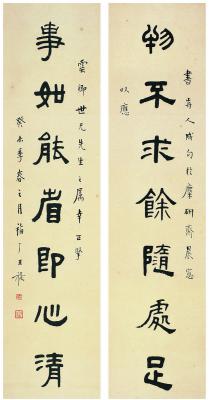 物不求餘隨處足
事如能省即心清
書奇人成句於摩研齋晨窗
以應
雲卿世兄先生之屬幸正擘
癸未季春之月